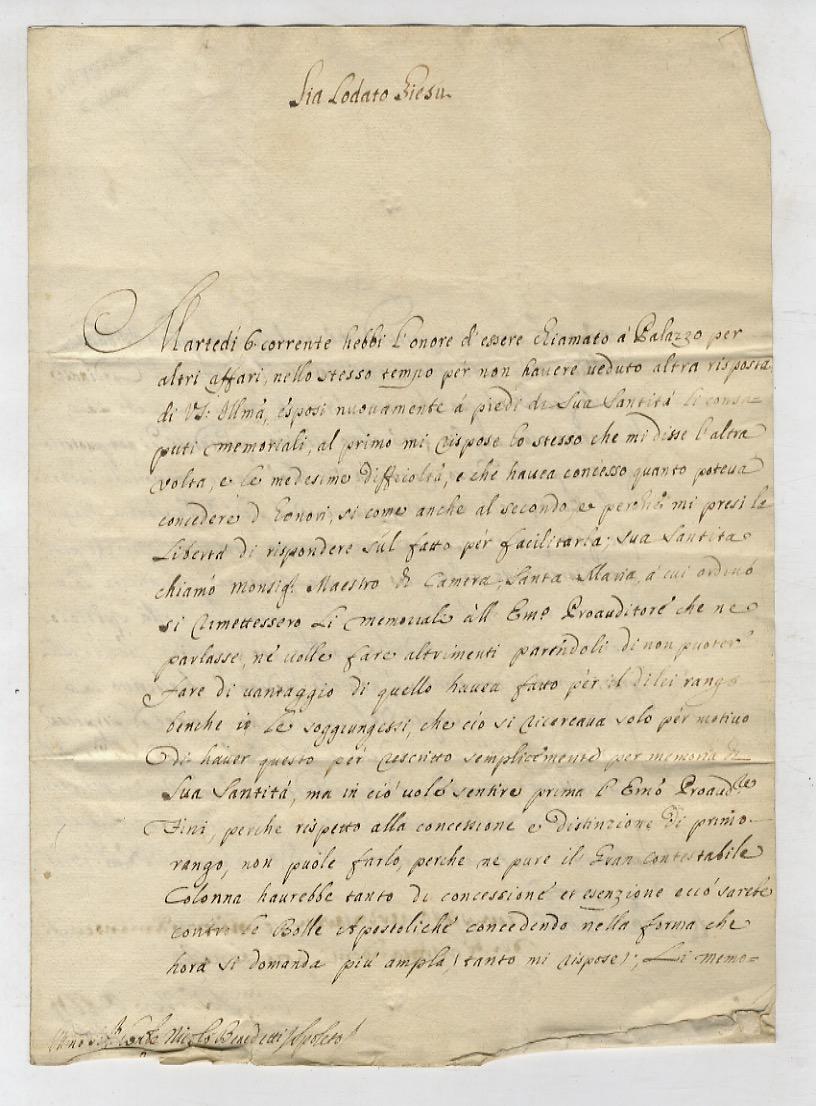 Sia Lodato Giesu
Martedí 6. corrente hebbi l'onore d'essere chiamato á Palazzo per
altri affari, nello stesso tempo per non havere veduto altra risposta
di VS: Illma, esposi nuovamente á piedi di Sua Santitá li consa=
puti memoriali, al primo mi rispose lo stesso che mi disse l'altra
volta, e le medesime difficoltá, e che havea concesso quanto poteva
concedere d'honori, si come anche al secondo, e perche mi presi la
libertá di rispondere sul fatto per facilitarla, sua Santita
chiamó Monsig.r Maestro di Camera Santa Maria, á cui ordinó
si rimettessero li memoriali all Emo Proauditore che ne
parlasse, né volle fare altrimenti parendoli di non puoter
fare di vantaggio di quello havea fatto per il di lei rango
benche io le soggiungessi, che ció si ricercava solo per motivo
di haver questo per rescritto semplicemente per memoria di
Sua Santitá, ma in ció vole sentire prima l'Emo Proaud.re
Fini, perche rispetto alla concessione e distinzione di primo
rango, non puole farlo, perche ne pure il Gran Contestabile
Colonna haurebbe tanto di concessione et esenzione e ció sarebe
contro le Bolle Apostoliche concedendo nella forma che
hora si domanda piú ampla (tanto mi rispose); Li memo=
Conte Nicoló Benedetti Spoleto